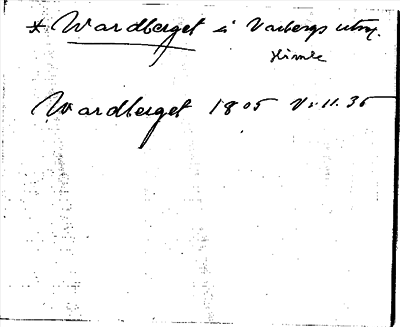 * Wardberget i Varbergs utmr.
Himle
Wardberget 1805 Vv 11.35